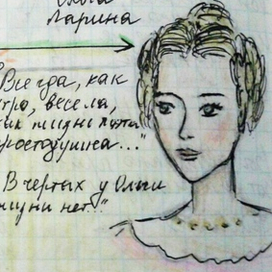 Ольга
Ларина
"Всегда, как
утро, весела,
как жизнь поэта
простодушна..."
В чертах у Ольги
жизни нет."